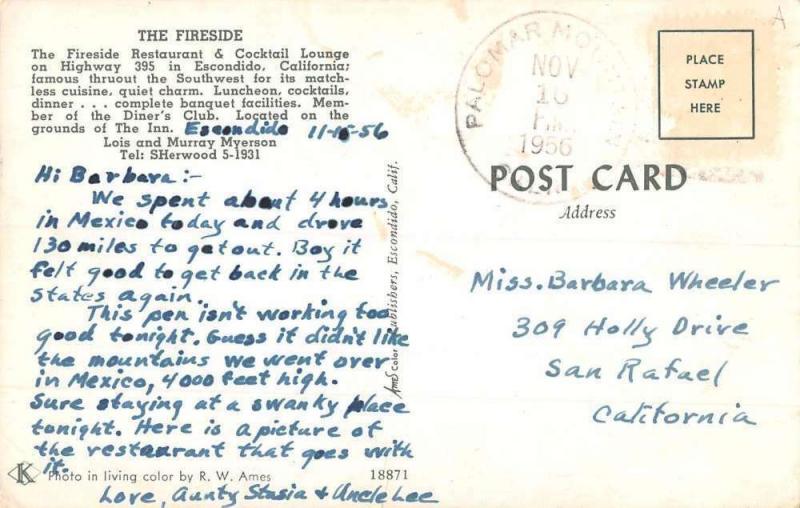 THE FIRESIDE
The Fireside Restaurant & Cocktail Lounge
on Highway 395 in Escondido, California;
famous thruout the Southwest for its match-
less cuisine, quiet charm. Luncheon, cocktails,
dinner . . . complete banquet facilities. Mem-
ber of the Diner's Club. Located on the
grounds of The Inn.
Lois and Murray Myerson
Tel: SHerwood 5-1931
Escondido 11-15-56
Hi Barbara:-
We spent about 4 hours
in Mexico today and drove
130 miles to get out. Boy it
felt good to get back in the
States again.
This pen isn't working too
good tonight. Guess it didn't like
the mountains we went over
in Mexico, 4000 feet high.
Sure staying at a swanky place
tonight. Here is a picture of
the restaurant that goes with
it.
Love, Aunty Stasia & Uncle Lee
K
Photo in living color by R. W. Ames
18871
Ames Color Publishers, Escondido, Calif.
PALOMAR
NOV
16
PM
1956
A
PLACE
STAMP
HERE
POST CARD
Address
Miss. Barbara Wheeler
309 Holly Drive
San Rafael
California